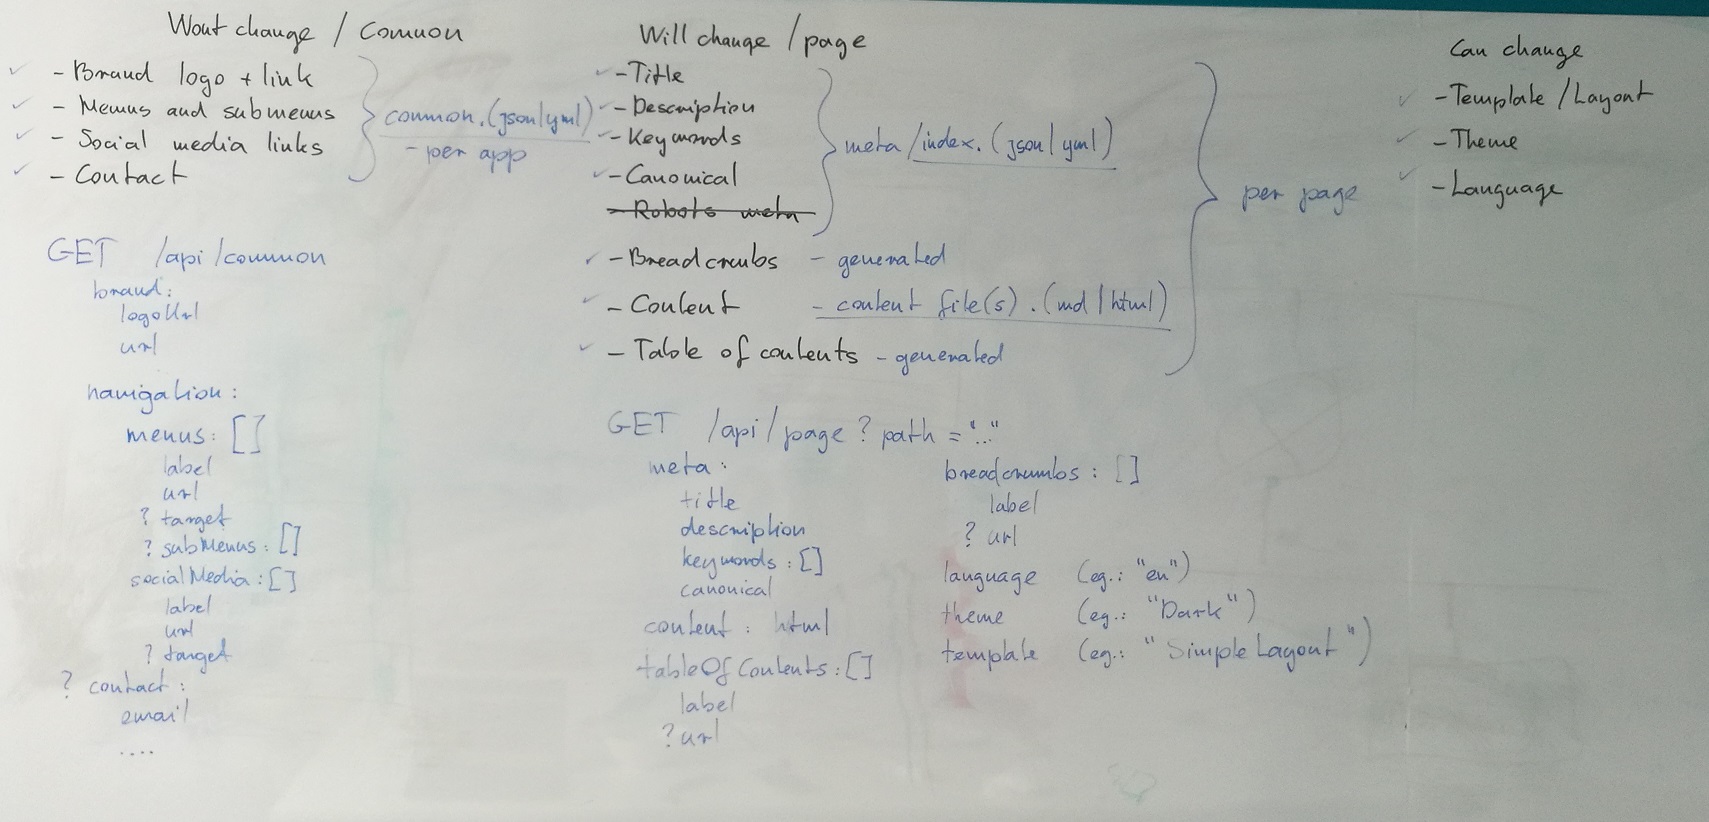 Wont change / Common
- Brand logo + link
- Menus and submenus
- Social media links
- Contact
common.(json|yml)
- per app
GET /api/common
brand:
logoUrl
url
navigation:
menus: []
label
url
? target
? subMenus: []
socialMedia: []
label
url
? target
? contact:
email
....
Will change / page
- Title
- Description
- Keywords
- Canonical
- Robots meta
meta/index.(json|yml)
- Breadcrumbs - generated
- Content - content file(s).(md|html)
- Table of contents - generated
per page
GET /api/page?path=".."
meta:
title
description
keywords: []
canonical
content: html
tableOfContents: []
label
? url
breadcrumbs: []
label
? url
language (eg.: "en")
theme (eg.: "Dark")
template (eg.: "SimpleLayout")
Can change
- Template/Layout
- Theme
- Language